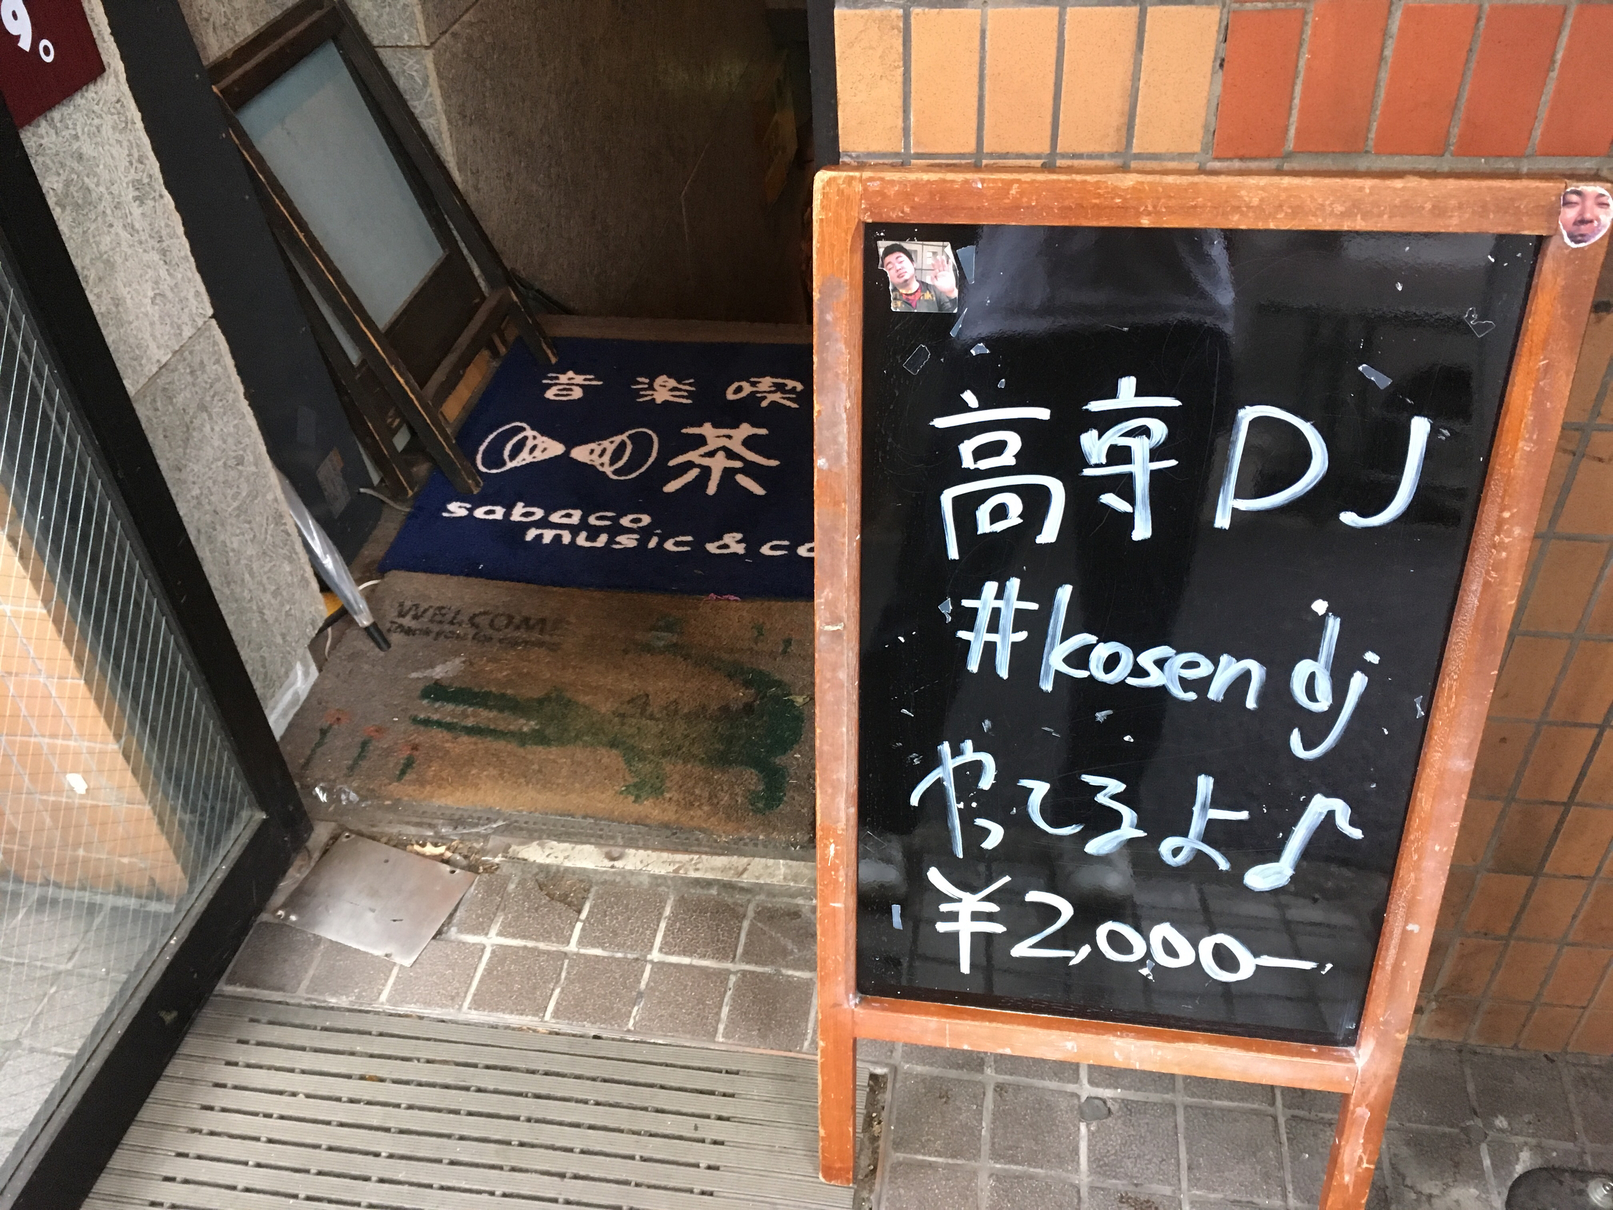 9。
音楽喫
茶
sabaco
music & c
WELCOME
Thank you for
高専DJ
#kosendj
やってるよ♪
¥2,000-